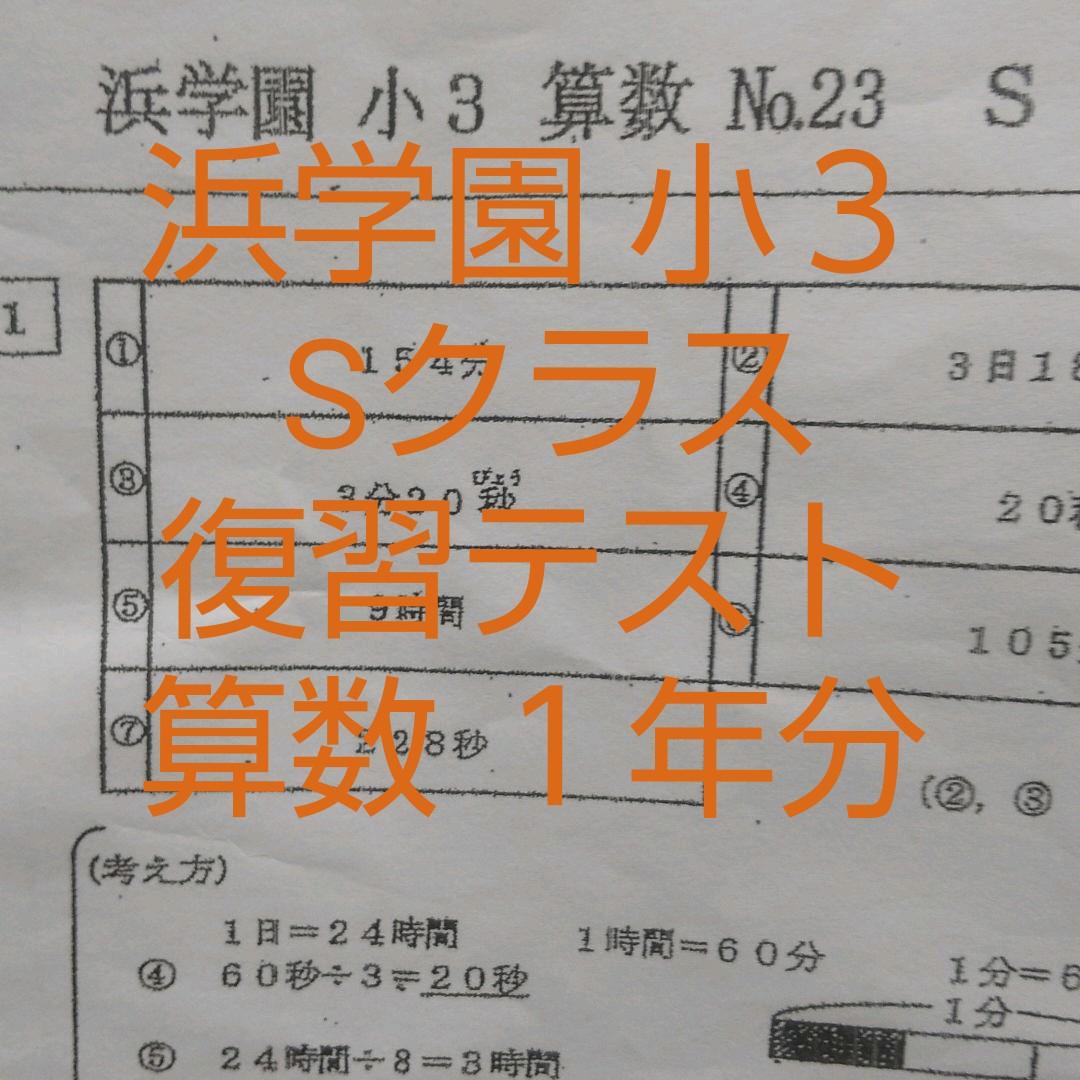 浜学園 小3 算数 №.23 S
浜学園 小３
Sクラス
復習テスト
算数 １年分
1
① 154分 ② 3日18
③ 3分20秒 ④ 20
びょう
⑤ 9時間 105
⑦ 228秒
(②, ③
(考え方)
1日=24時間 1時間=60分 1分=6
④ 60秒÷3=20秒
1分
⑤ 24時間÷8=3時間